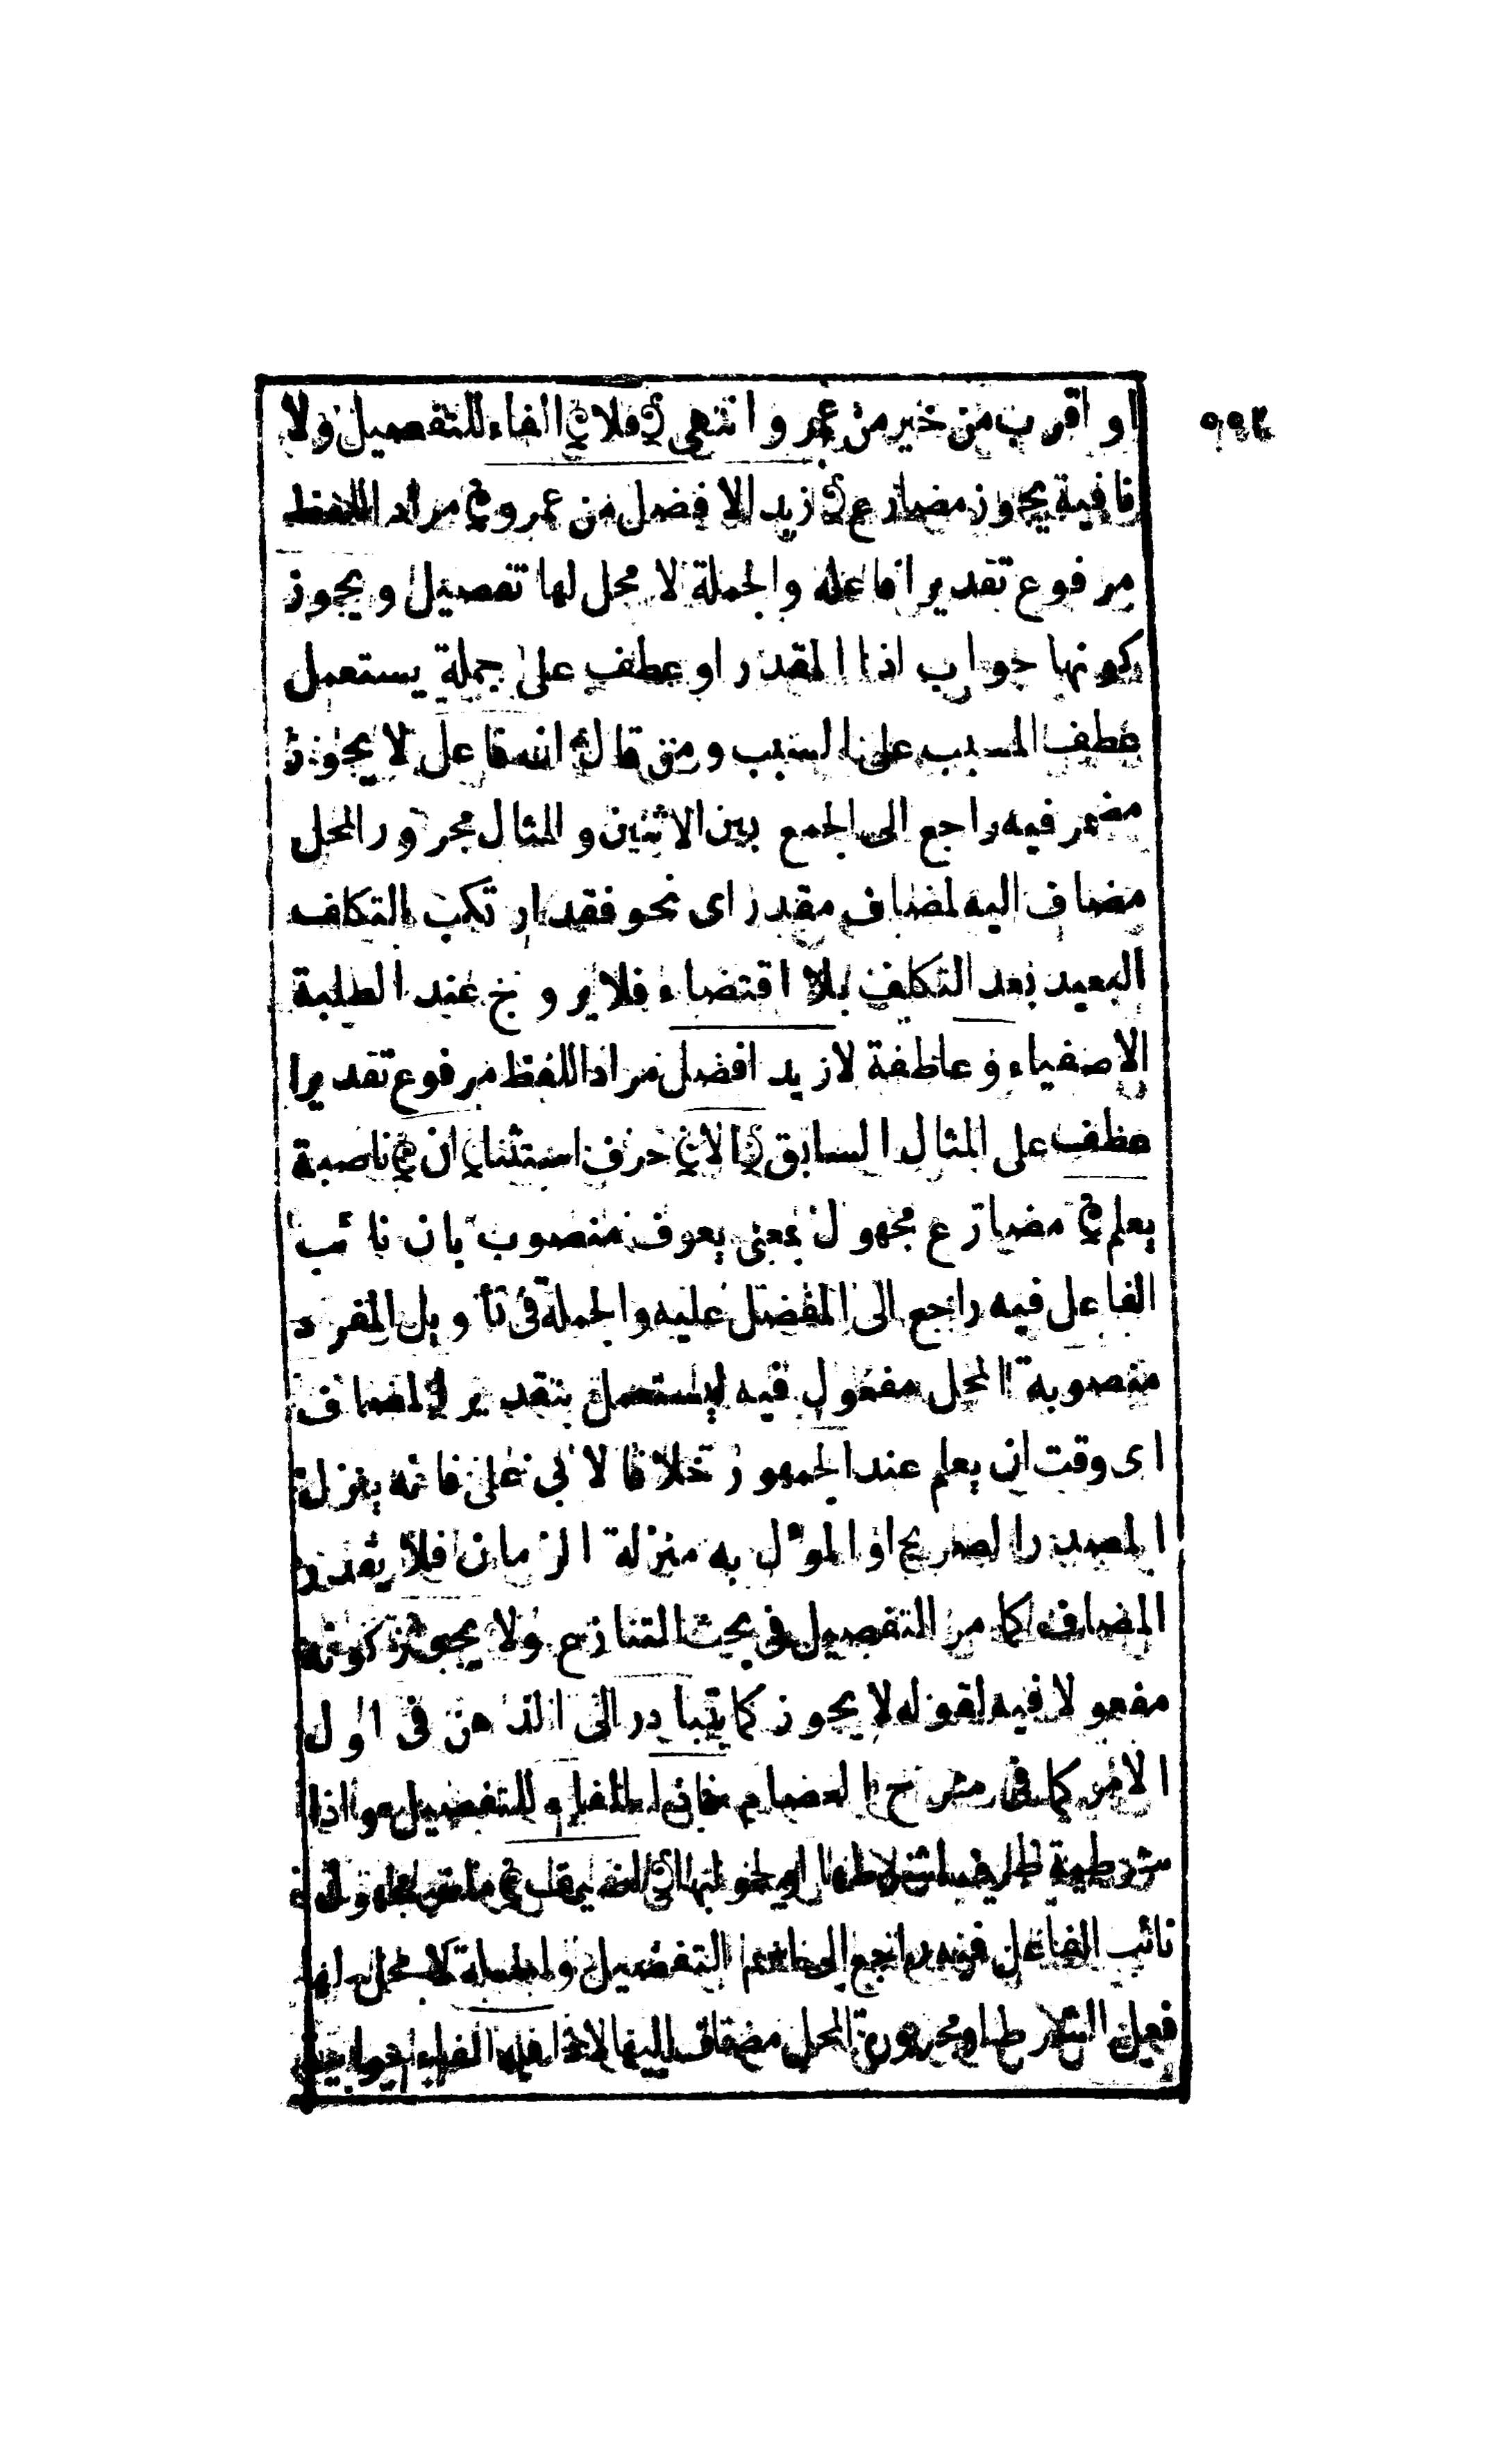 او اقرب من خير من عمرو انتهى (فلا) الفاء للتفصيل ولا
نافية يجوز مضارع (زيد الافضل من عمرو) مراد اللفظ
مرفوع تقديرا فاعله والجملة لا محل لها تفصيل ويجوز
كونها جواب اذا المقدر او عطف على جملة يستعمل
عطف المسبب على السبب ومن قال انه فاعل لا يجوز
مضمر فيه راجع الى الجمع بين الاثنين والمثال مجرور المحل
مضاف اليه لمضاف مقدر اى نحو فقد ارتكب التكلف
البعيد بعد التكلف بلا اقتضاء فلا يروج عند الطلبة
الاصفياء و عاطفة لا زيد افضل مراد اللفظ مرفوع تقديرا
عطف على المثال السابق (الا) حرف استثناء (ان) ناصبة
(يعلم) مضارع مجهول بمعنى يعرف منصوب بان نائب
الفاعل فيه راجع الى المفضل عليه والجملة فى تأويل المفرد
منصوبة المحل مفعول فيه ليستعمل بتقدير المضاف
اى وقت ان يعلم عند الجمهور خلافا لابى على فانه ينزل
المصدر الصريح او المؤل به منزلة الزمان فلا يقدر
المضاف كما مر التفصيل فى بحث التنازع ولا يجوز كونه
مفعولا فيه لقوله لا يجوز كما يتبادر الى الذهن فى اول
الامر كما فى شرح العصام فاذا الفاء للتفصيل واذا
شرطية
نائب الفاعل فيه راجع الى اسم التفضيل والجملة لا محل لها
فعل الشرط او مجرورة المحل مضاف اليها لاذا الفاء جوابية